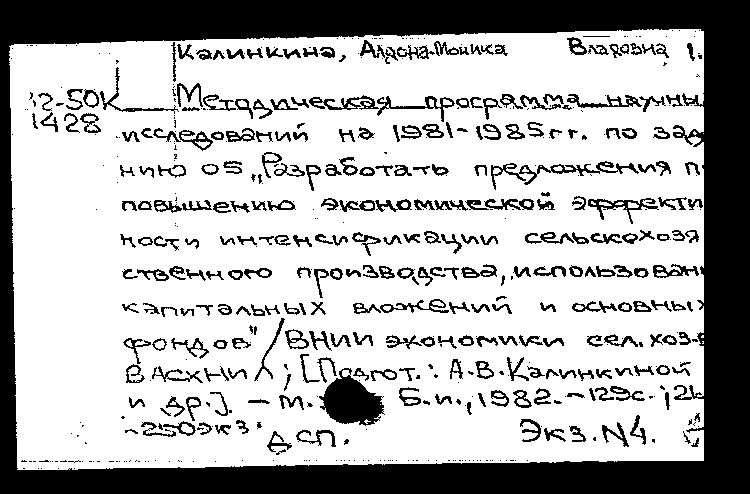 Калинкина, Алдона-Моника Владовна 1.
12-50К Методическая программа научны
1428 исследований на 1981-1985гг. по зада
нию 05 „Разработать предложения п
повышению экономической эффекти
ности интенсификации сельскохозя
ственного производства, использован
капитальных вложений и основных
фондов" / ВНИИ экономики сел. хоз-в
ВАСХНИЛ; [Подгот.: А.В.Калинкиной
и др.]. - М.: Б.и., 1982. - 129с.; 21
-250экз. ДСП. Экз.N4.